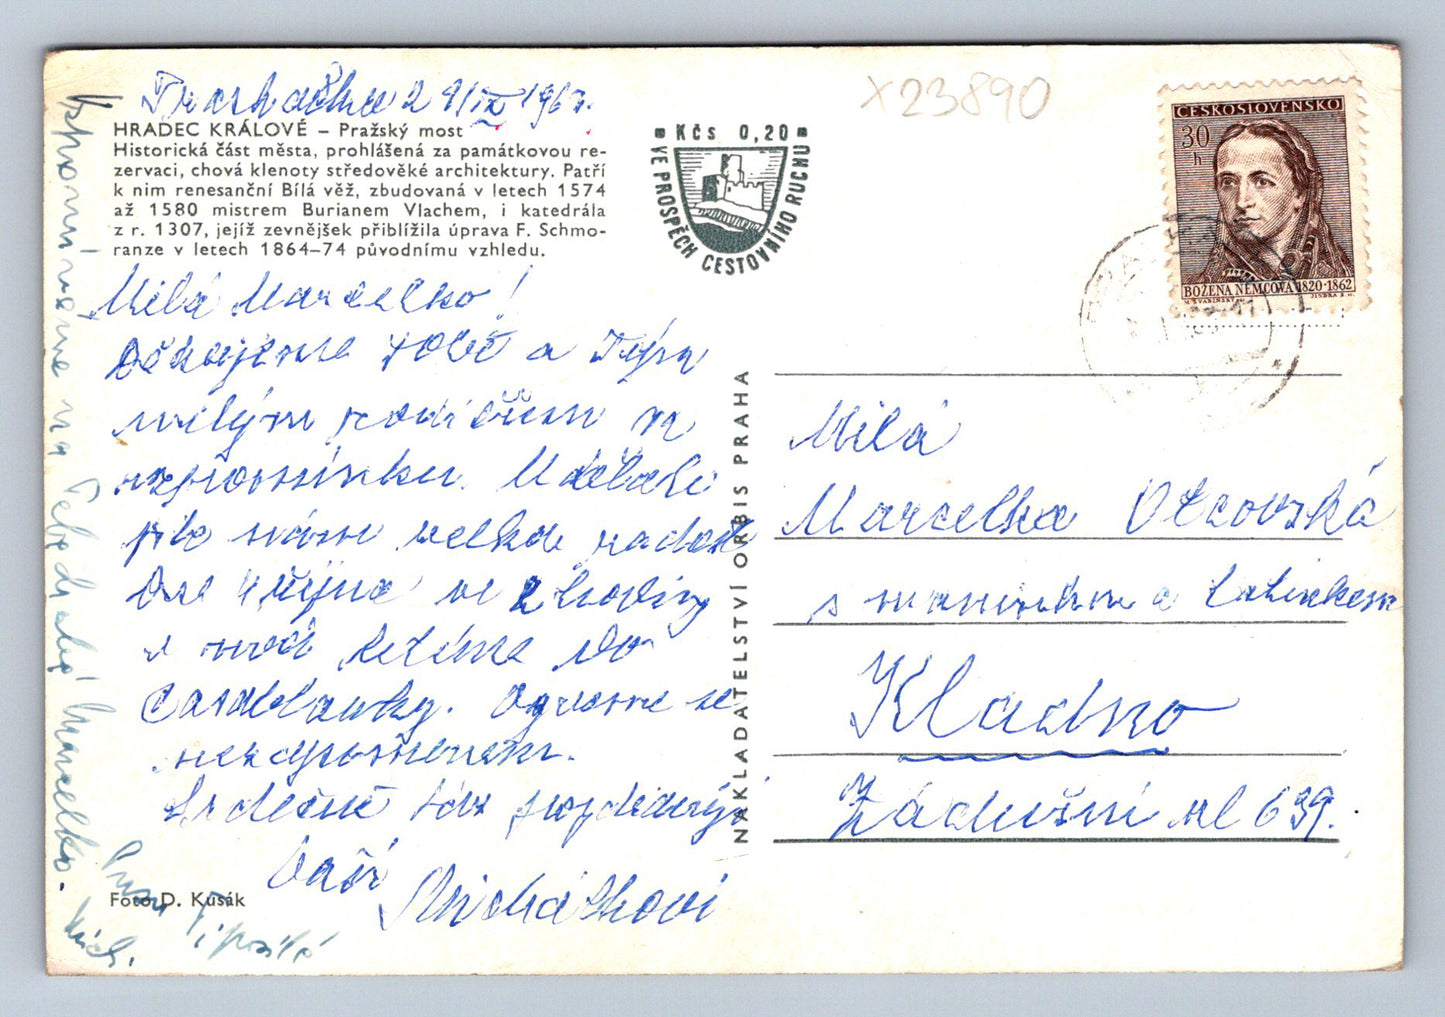 2 9/IX 1963.
X23890
HRADEC KRÁLOVÉ – Pražský most
Historická část města, prohlášená za památkovou re-
zervaci, chová klenoty středověké architektury. Patří
k nim renesanční Bílá věž, zbudovaná v letech 1574
až 1580 mistrem Burianem Vlachem, i katedrála
z r. 1307, jejíž zevnějšek přiblížila úprava F. Schmo-
ranze v letech 1864–74 původnímu vzhledu.
Milá Marcelko!
Děkujeme Tobě a Tvým
milým rodičům za
vzpomínku. Udělali
jste nám velkou radost
Dne 4 října ve 2 hodiny
v noci letíme do
Casablanky. Ozveme se
nezapomenem.
Srdečně Vás pozdravují
Vaši
Michálkovi
Vzpomínáme na Tebe drahá Marcelko.
Pusu
Ti posílá
Mich.
Foto D. Kusák
Kčs 0,20
VE PROSPĚCH CESTOVNÍHO RUCHU
NAKLADATELSTVÍ ORBIS PRAHA
ČESKOSLOVENSKO
30
h
BOŽENA NĚMCOVÁ 1820·1862
M. ŠVABINSKÝ
JINDRA S.
Milá
Marcelka Otcovská
s maminkou a tatínkem
Kladno
Zádušní ul 639.